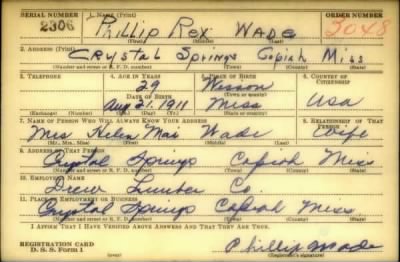 SERIAL NUMBER 1. NAME (Print) ORDER NUMBER
2306 Phillip Rex Wade 3048
(First) (Middle) (Last)
2. ADDRESS (Print)
Crystal Springs Copiah Miss
(Number and street or R. F. D. number) (Town) (County) (State)
3. TELEPHONE 4. AGE IN YEARS 5. PLACE OF BIRTH 6. COUNTRY OF CITIZENSHIP
29 Wesson
DATE OF BIRTH (Town or county)
Aug 21. 1911 Miss USA
(Exchange) (Number) (Mo.) (Day) (Yr.) (State or country)
7. NAME OF PERSON WHO WILL ALWAYS KNOW YOUR ADDRESS 8. RELATIONSHIP OF THAT PERSON
Mrs Helen Mai Wade Wife
(Mr., Mrs., Miss) (First) (Middle) (Last)
9. ADDRESS OF THAT PERSON
Crystal Springs Copiah Miss
(Number and street or R. F. D. number) (Town) (County) (State)
10. EMPLOYER'S NAME
Drew Lumber Co.
11. PLACE OF EMPLOYMENT OR BUSINESS
Crystal Springs Copiah Miss
(Number and street or R. F. D. number) (Town) (County) (State)
I AFFIRM THAT I HAVE VERIFIED ABOVE ANSWERS AND THAT THEY ARE TRUE.
REGISTRATION CARD
D. S. S. Form 1 Phillip Wade